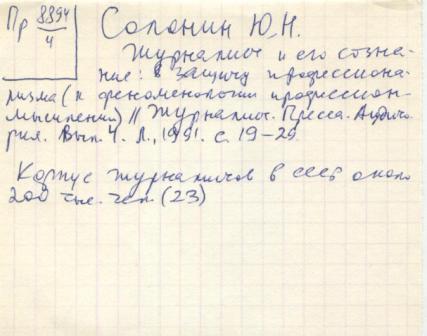 Пр 8894/4
Солонин Ю.Н.
Журналист и его созна-
ние: в защиту профессиона-
лизма (к феноменологии профессион.
мышления) // Журналист. Пресса. Аудито-
рия. Вып. 4. Л., 1991. с. 19-29
Корпус журналистов в США около
200 тыс. чел. (23)